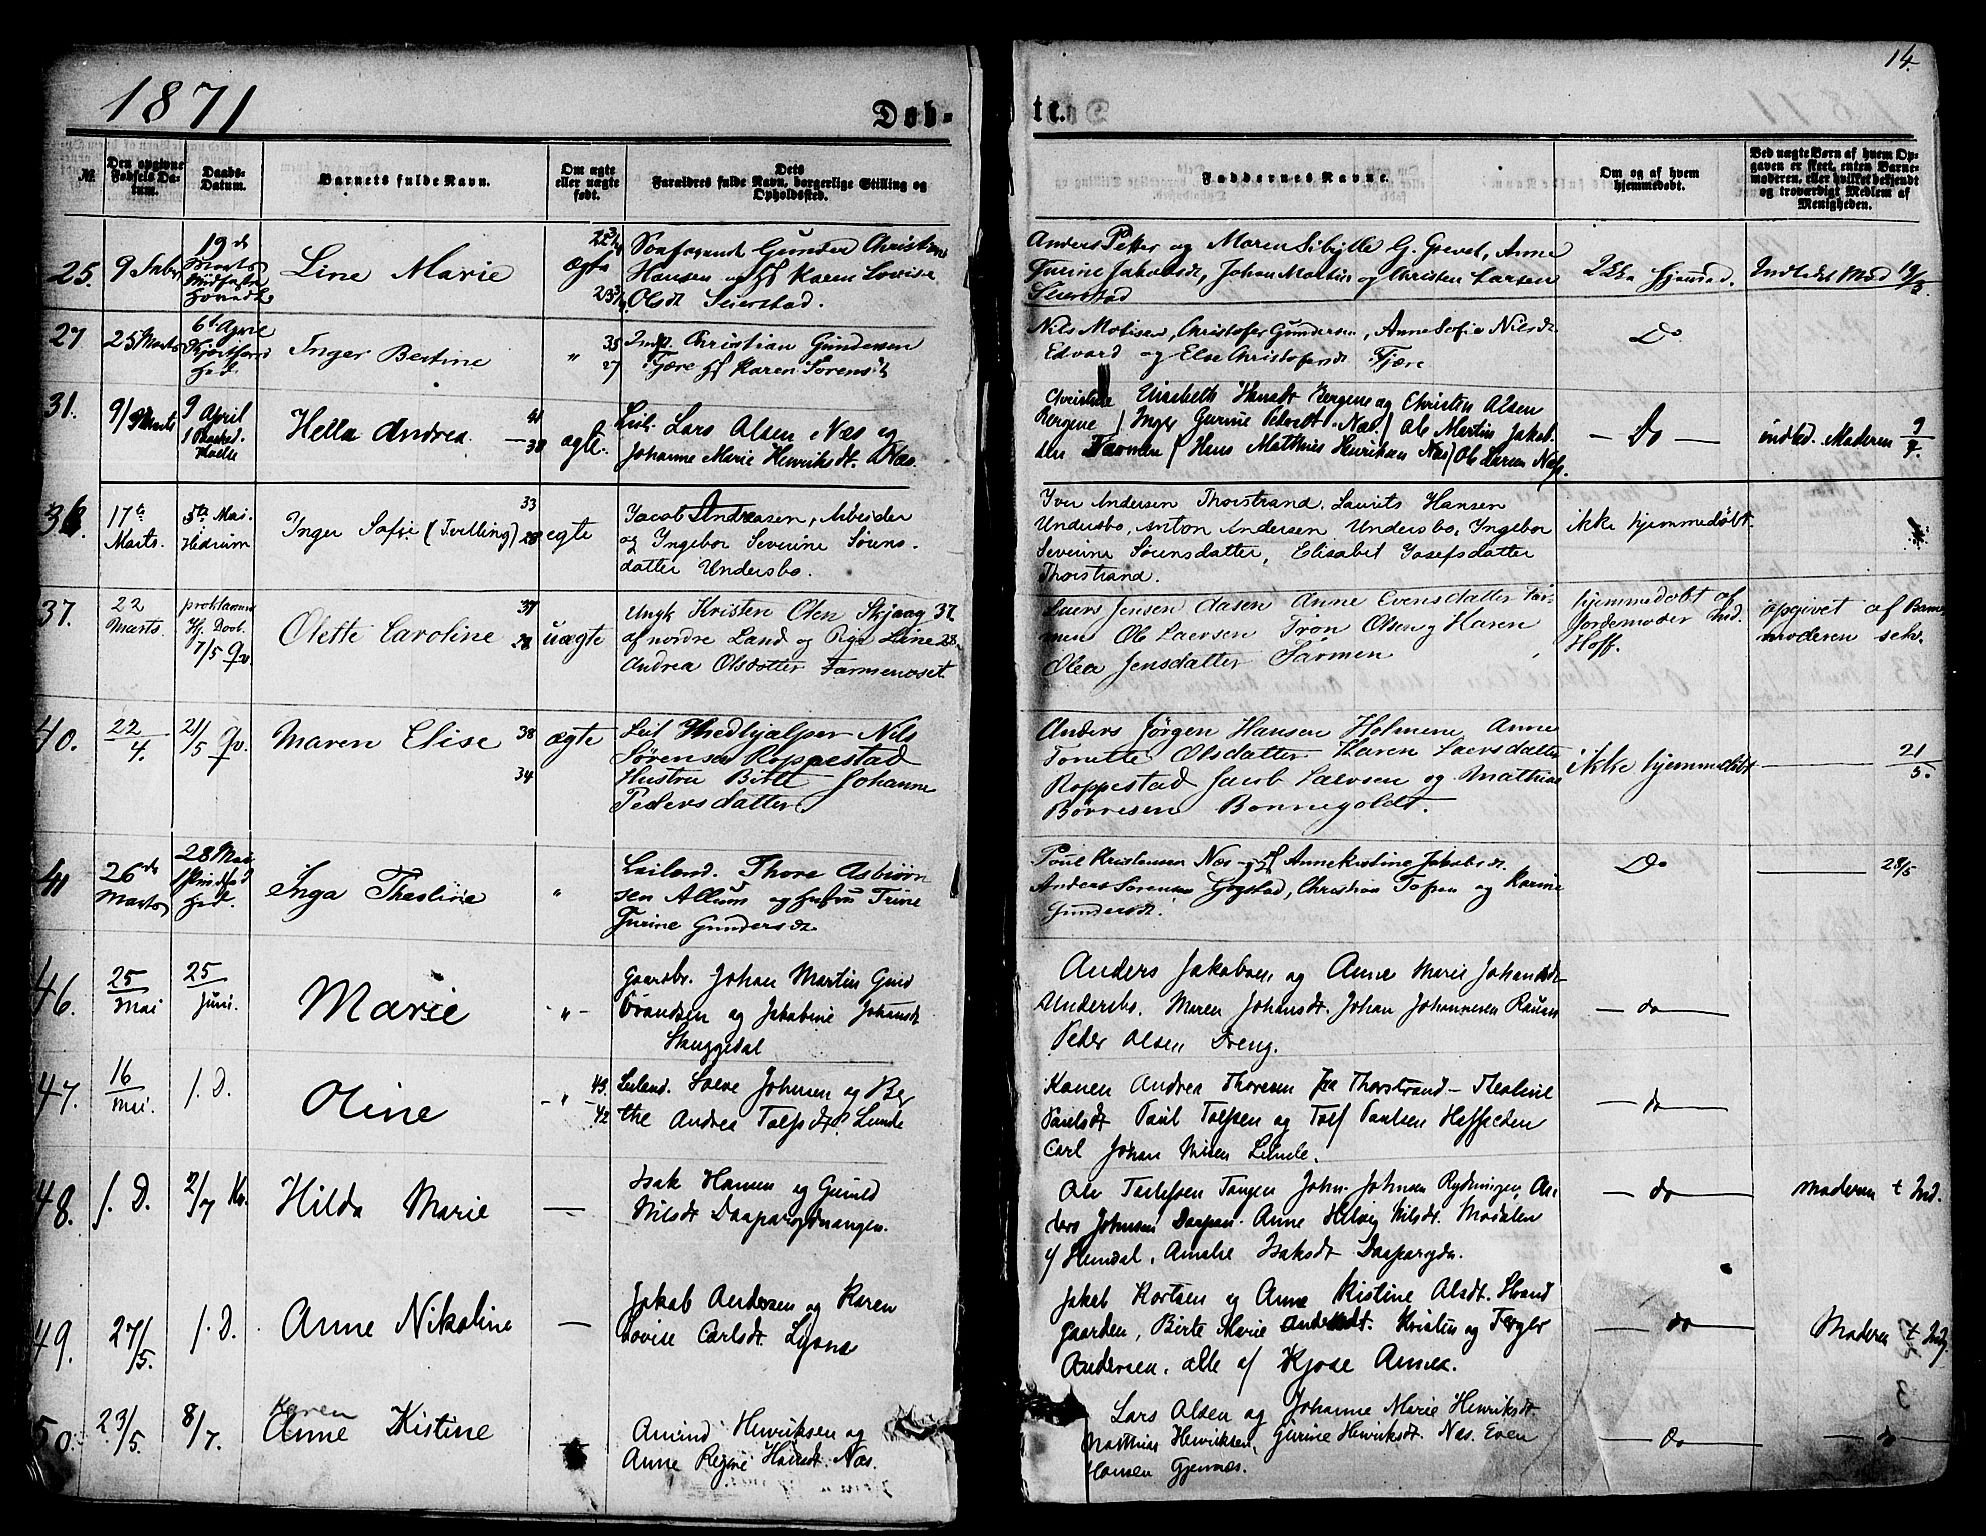 14.
1871
Døb-
te.
№
Den opgivne Fødsels Datum.
Daabs-Datum.
Barnets fulde Navn.
Om ægte eller uægte født.
Dets Forældres fulde Navn, borgerlige Stilling og Opholdssted.
Faddernes Navne.
Om og af hvem hjemmedøbt.
Ved uægte Børn af hvem Opgaven er skeet, enten Barnemoderen, eller hvilket bekjendt og troværdigt Medlem af Menigheden.
25.
19de Marts
Line Marie
ægte
Gunder Christian
Hansen og Hf Karen Lovise
Olsdt Seierstad.
Anders Petter og Maren Sibylle G. Grevet, Anne
Gurine Jakobsdt, Johan Martin og Christen Larsen
Seierstad
19/3.
27
25 Marts
6te April
Inger Bertine
"
35
27
Christian Gundersen
Fjære Hf Karen Sørensdt
Nils Matisen, Christofer Gundersen, Anne Sofie Nilsdt
Edvard og Else Christofersdt Fjære
Do
31.
9/ Marts
9 April
Hella Andrea
41
38
ægte.
Leil. Lars Olsen Næs og
Johanne Marie Henriksdt. Næs.
Elisabeth Hansdt Bergene og Christen Olsen
Bergene / Inger Gurine Pedersdt. Næs / Ole Martin Jakob-
sen Farmen / Hans Matthias Henriksen Næs / Ole Larsen Næs.
— Do —
indled. Moderen 9/4.
17te Marts.
5te Mai. Hedrum
Inger Sofie (Tvilling)
33
28
egte
Jacob Andreasen, Arbeider
og Ingebor Severine Sørens-
datter Undersbo.
Iver Andersen Thorstrand. Laurits Hansen
Undersbo, Anton Andersen Undersbo, Ingebor
Severine Sørensdatter, Elisabet Josefsdatter
Thorstrand.
ikke hjemmedøbt.
37.
22 Marts.
7/5 Qv.
Olette Caroline
37
28
uægte
Ungk Kristen Olsen Skjaag 37
af nordre Land og Pige Line 28.
Andrea Olsdotter Farmenoset
Laers Jensen Aasen Anne Evensdatter Far-
men Ole Laersen Tron Olsen og Karen
Olea Jensdatter Farmen
hjemmedøbt af
Jordemoder
Hoff.
opgivet af Barne-
moderen selv.
40.
22/4.
21/5 Qv.
Maren Elise
38
34
ægte
Leil Medhjælper Nils
Sørensen Roppestad
Hustru Birte Johanne
Pedersdatter
Anders Jørgen Hansen Holmene Anne
Torette Olsdatter Karen Laersdatter
Roppestad Jacob Laersen og Mathias
Børresen Bonnegoldt.
ikke hjemmedøbt
21/5.
41
26de Marts
28 Mai
Inga Thealine
"
Leiland. Thore Asbiørn
sen Allum og Hustru Trine
Gurine Gundersdt.
Poul Kristensen Næs - Hf Anne Kristine Jakobsdt
Anders Sørensen Gogstad, Christian Tofsen og Karine
Gundersdt.
Do
28/5
46.
25/Mai
25/Juni.
Marie
- " -
Gaardbr. Johan Martin Gud
brandsen og Jakobine Johansdt
Skuggedal
Anders Jakobsen og Anne Marie Johansdt
Undersbo. Maren Johansdt. Johan Johannesen Rauan
Peder Olsen Dreng.
— do —
47.
16/Mai.
f. D.
Oline
- " -
43.
42
Leiland. Saeve Johnsen og Ber
the Andrea Tolfsdt Lunde
Karen Andrea Thoresen fra Thorstrand — Thealine
Paulsdt Paul Tolfsen og Tolf Paulsen Heffeden
Carl Johan Nilsen Lunde.
— do —
48.
f. D.
2/7 Kv.
Hilda Marie
—
Isak Hansen og Gunild
Nilsdt Daapanrydningen.
Ole Tollefsen Tangen John Johnsen Rydningen, An-
ders Johnsen Daapan. Anne Helvig Nilsdt. Modalen
i/ Hemdal, Amalie Isaksdt Daaparydn.
— do —
Moderen t Ind.
49.
27/5.
f. D.
Anne Nikoline
—
Jakob Andersen og Karen
Lovise Carlsdt. Lysne
Jakob Kortsen og Anne Kistine Olsdt. Strand
gaarden, Birte Marie Andersdt. Kristen og Terger
Andersen, alle af Kjose Annex.
— do —
Moderen t Ind.
50.
23/5.
8/7.
Karen
Anne Kistine
—
Amund Henriksen og
Anne Regine Hansdt. Næs.
Lars Olsen og Johanne Marie Henriksdt.
Matthias Henriksen, Gurine Henriksdt. Næs. Even
Hansen Gjønnes.
— do —
— do —